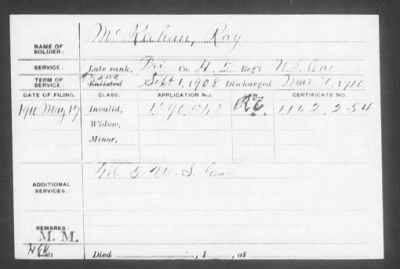 NAME OF SOLDIER: Mc Keehan, Ray
SERVICE: Late rank, Pri Co. H, 5 Reg't U.S. Cav
TERM OF SERVICE: Enlisted Sept 1, 1908 Discharged Mar 1910
DATE OF FILING. CLASS. APPLICATION NO. CERTIFICATE NO.
1910 May 17 Invalid, 1162254
Widow,
Minor,
ADDITIONAL SERVICES: 5 U.S. Cav
REMARKS:
M. M.
Died , 1 , at